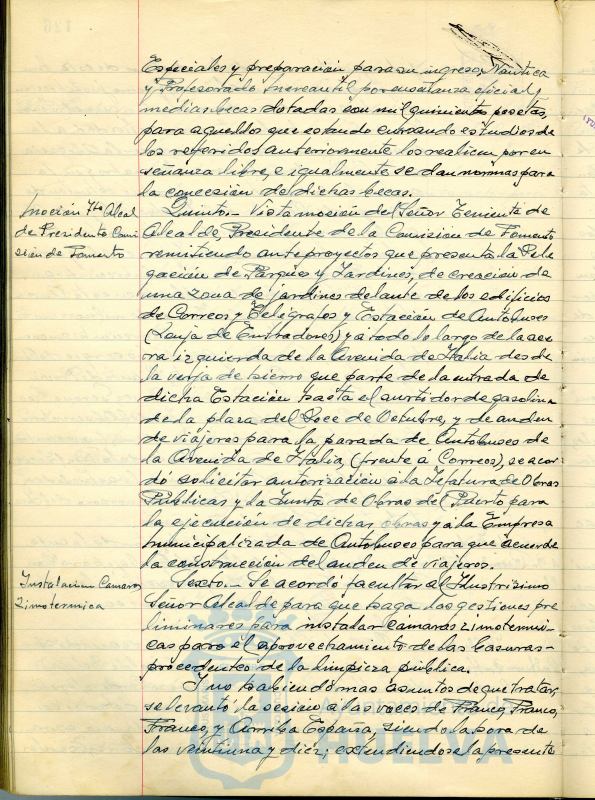 Especiales y preparación para su ingreso, Naútica
y Profesorado Mercantil por enseñanza oficial y
medias becas dotadas con mil quinientas pesetas,
para aquellos que estando cursando estudios de
los referidos anteriormente los realicen por en
señanza libre, e igualmente se dan normas para
la concesión de dichas becas.
Moción Tte Alcal
de Presidente Comi
sión de Fomento
Quinto.- Vista moción del Señor Teniente de
Alcalde, Presidente de la Comisión de Fomento
remitiendo anteproyectos que presenta la Dele
gación de Parques y Jardines, de creación de
una zona de jardines delante de los edificios
de Correos y Telégrafos y Estación de Autobuses
(Lonja de Entradores) y a todo lo largo de la ace
ra izquierda de la Avenida de Italia desde
la verja de hierro que parte de la entrada de
dicha Estación hasta el surtidor de gasolina
de la plaza del Doce de Octubre, y de anden
de viajeros para la parada de Autobuses de
la Avenida de Italia, (frente á Correos), se acor
dó solicitar autorización a la Jefatura de Obras
Públicas y la Junta de Obras del Puerto para
la ejecución de dichas obras y a la Empresa
municipalizada de Autobuses para que acuerde
la construcción del anden de viajeros.
Instalacion Camaras
Zimotermica
Sexto.- Se acordó facultar al Ilustrísimo
Señor Alcalde para que haga las gestiones pre
liminares para instalar camaras zimotermi-
cas para el aprovechamiento de las basuras
procedentes de la limpieza pública.
Y no habiendo mas asuntos de que tratar,
se levantó la sesión a las voces de Franco, Franco,
Franco, y Arriba España, siendo la hora de
las veintiuna y diez; extendiendose la presente
HUELVA